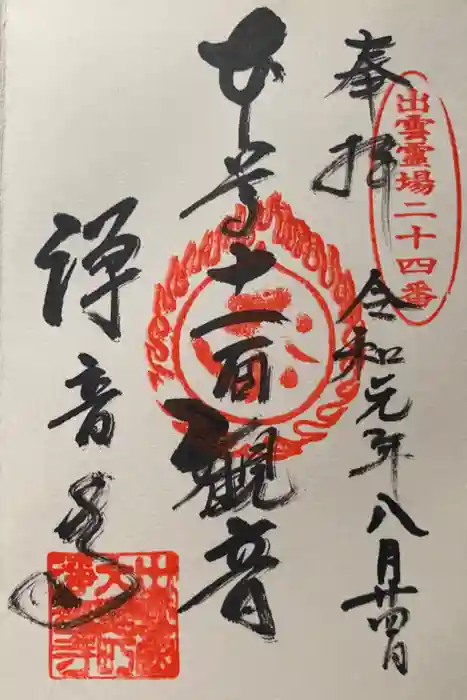 奉拝
出雲霊場二十四番
令和元年八月廿四日
本尊十一面観音
禅音寺